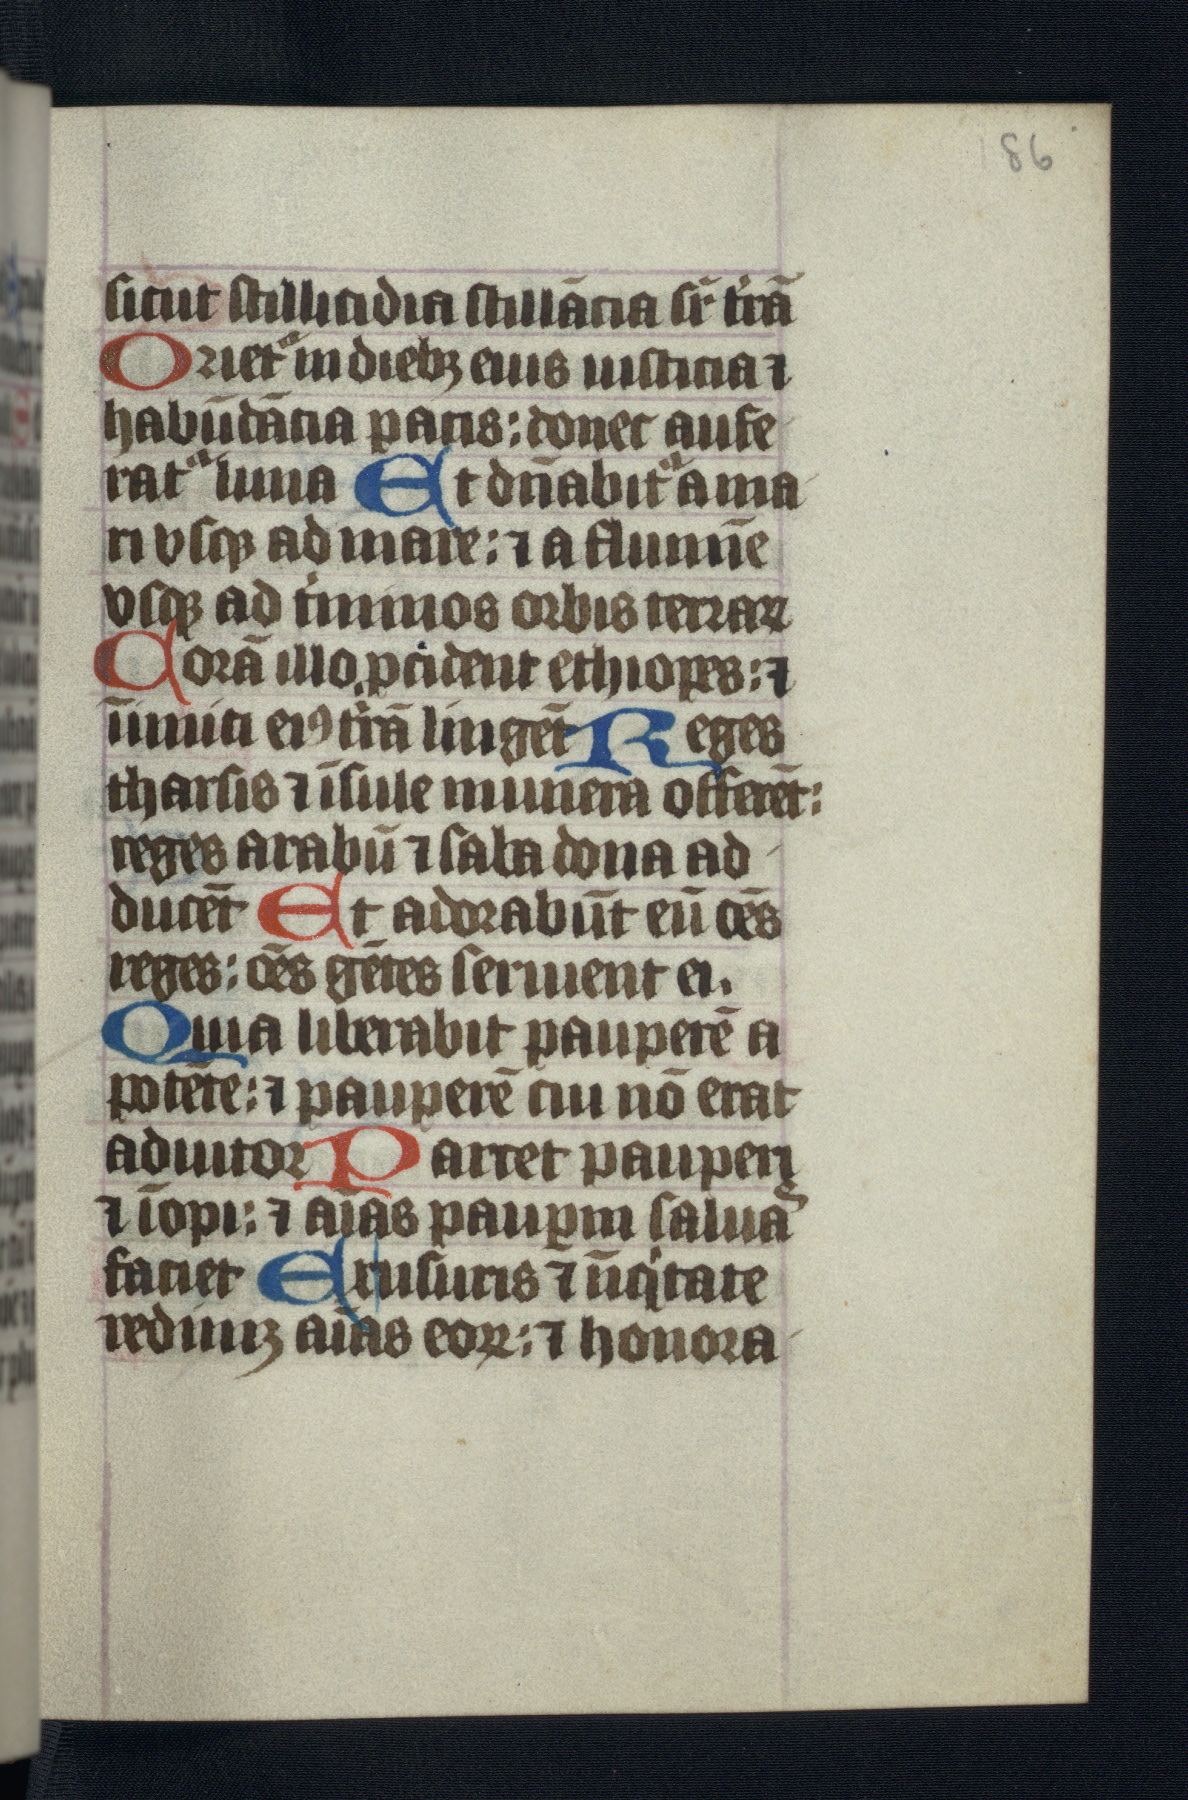 186
sicut stillicidia stillācia sr̄ t̓rā
Orietᷣ in diebꝫ eius iusticia ⁊
habūdācia pacis: donec aufe
ratᷣ luna Et dn̄abitᷣ a ma
ri vsqꝫ ad mare: ⁊ a flumīe
vsqꝫ ad t̓minos orbis terrarꝝ
Corā illo ꝓcident ethiopes: ⁊
īimici eiꝰ t̓rā lingēt Reges
tharsis ⁊ īsule munera offerēt:
reges arabū ⁊ saba dona ad
ducēt Et adorabūt eū oēs
reges: oēs gētes seruient ei.
Quia liberabit pauperē a
potēte: ⁊ pauperē cui nō erat
adiutor Parcet pauperi
⁊ īopi: ⁊ aīas pauꝑm saluas
faciet Ex usuris ⁊ īiq̓tate
redimꝫ aīas eoꝝ: ⁊ honora